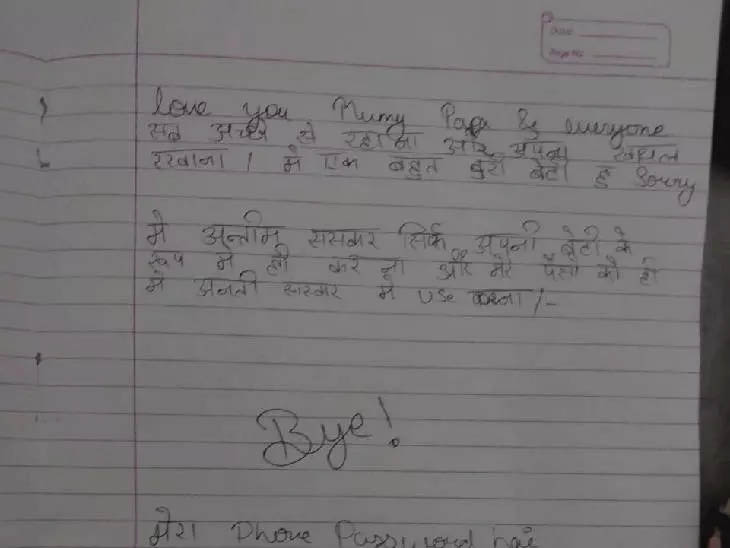 Date
Page No.
love you Mumy Papa & everyone
सब अच्छे से रहना और अपना ख्याल
रखना । मे एक बहुत बुरी बेटी हूँ Sorry
मे अन्तीम ससकार सिर्फ अपनी बेटी के
रूप मे ही कर ना और मेरे पैसो को ही
मे अनती सास्कार मे use करना /-
Bye!
मेरा Phone Password hai